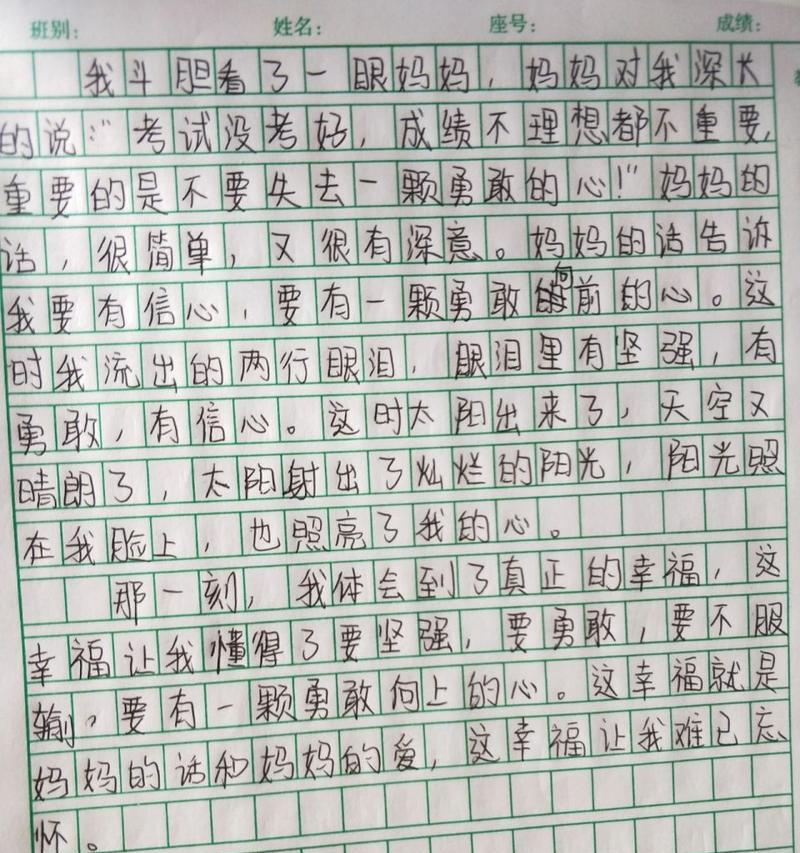 班别： 姓名： 座号： 成绩：
我斗胆看了一眼妈妈，妈妈对我深长
的说：“考试没考好，成绩不理想都不重要，
重要的是不要失去一颗勇敢的心！”妈妈的
话，很简单，又很有深意。妈妈的话告诉
我要有信心，要有一颗勇敢向前的心。这
时我流出的两行眼泪，眼泪里有坚强，有
勇敢，有信心。这时太阳出来了，天空又
晴朗了，太阳射出了灿烂的阳光，阳光照
在我脸上，也照亮了我的心。
那一刻，我体会到了真正的幸福，这
幸福让我懂得了要坚强，要勇敢，要不服
输，要有一颗勇敢向上的心。这幸福就是
妈妈的话和妈妈的爱，这幸福让我难已忘
怀。